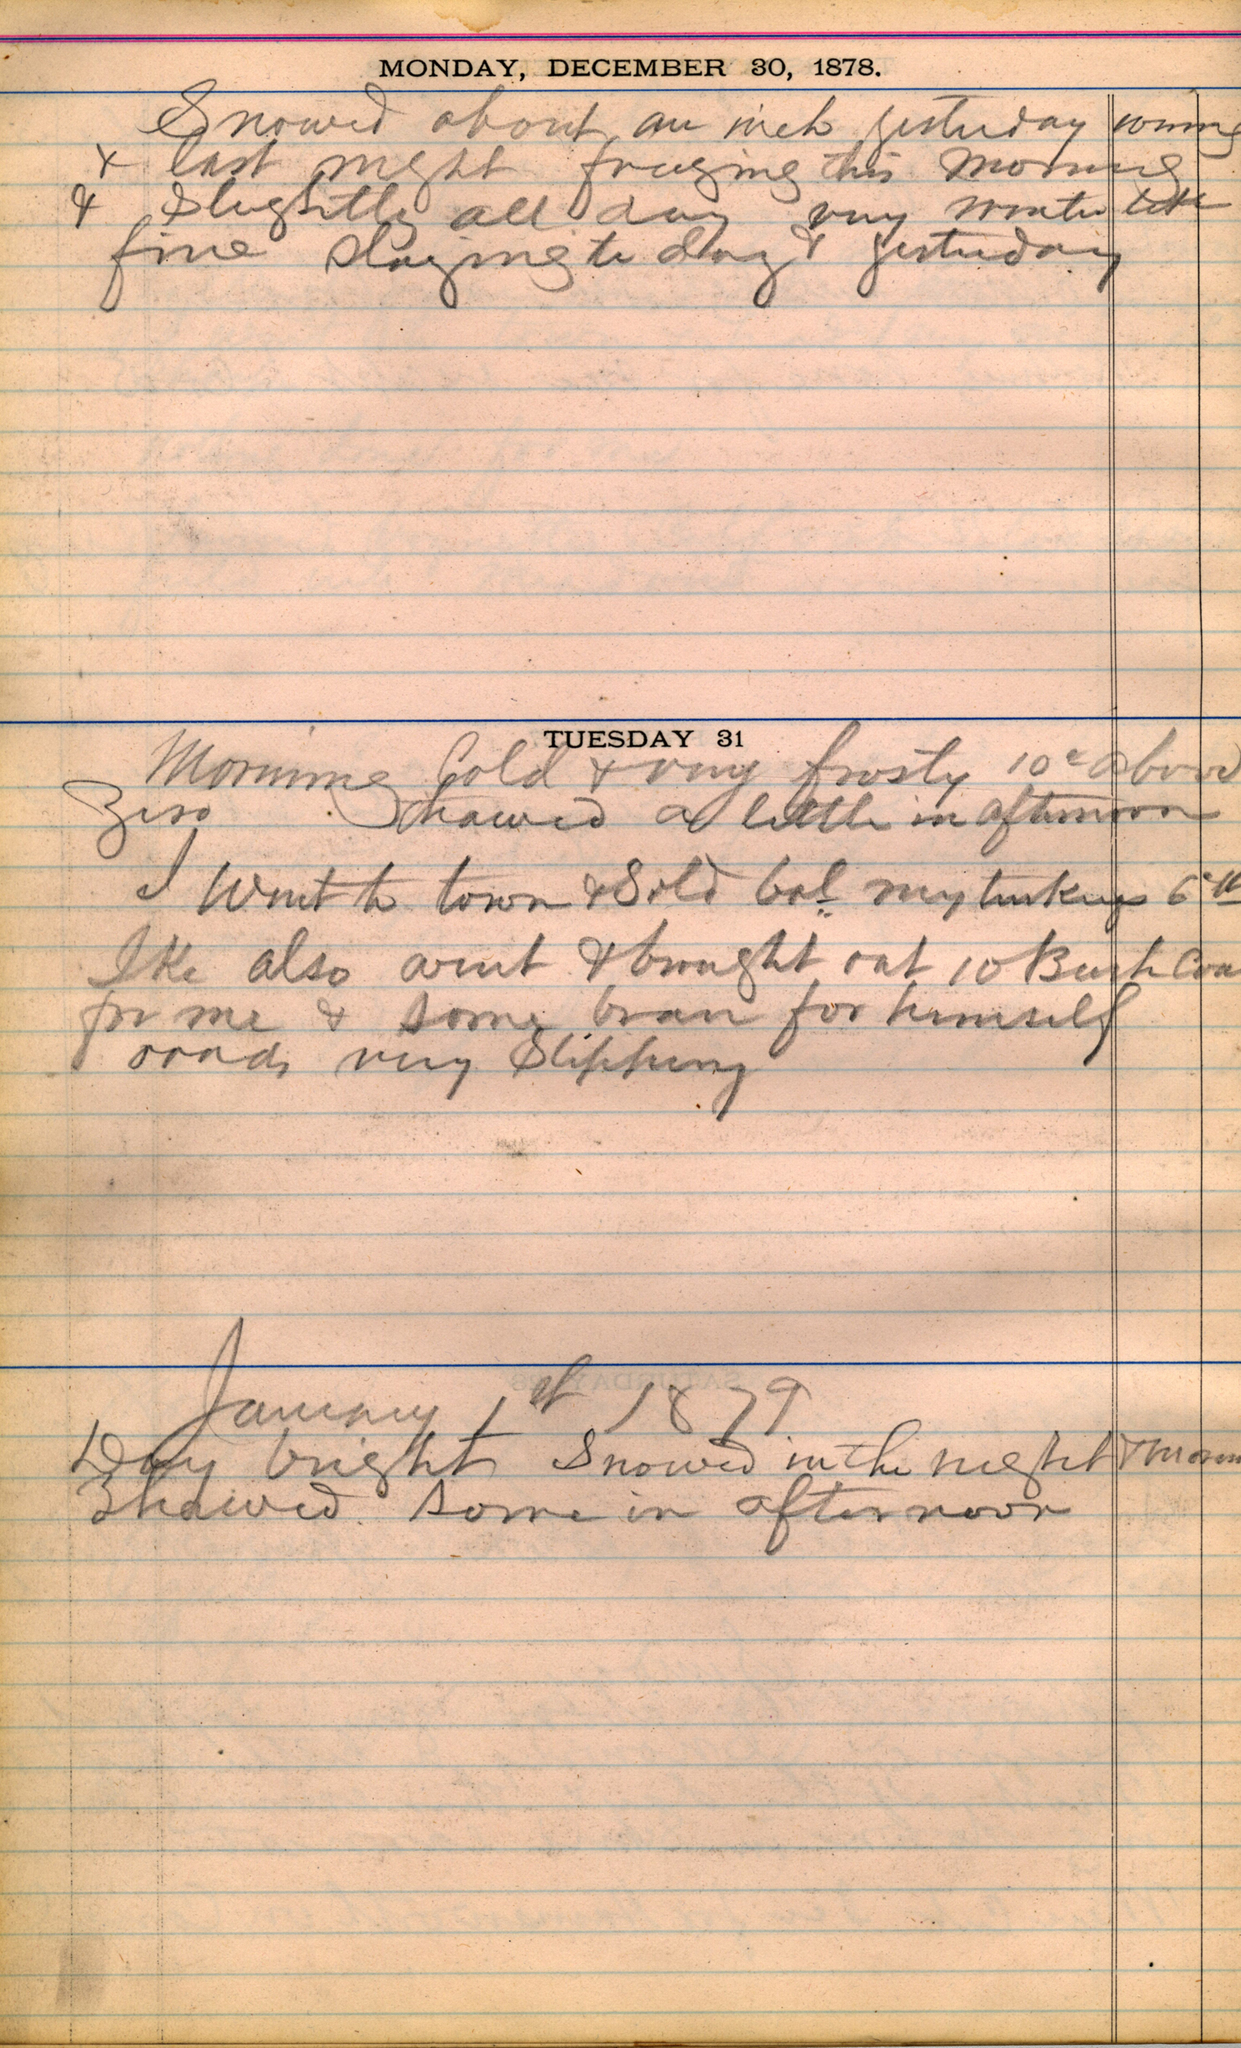 MONDAY, DECEMBER 30, 1878.
Snowed about an inch yesterday
& last night freezing this Morning
& Slightly all day very winter like
fine Slaying to day & yesterday
TUESDAY 31
Morning Cold & very frosty 10° above
Zero Thawed a little in afternoon
I Went to town & Sold bal. my turkeys 6
Ike also went & brought out 10 Bush
for me & some bran for himself
roads very Slippery
January 1st 1879
Day bright Snowed in the night &
Thawed some in afternoon